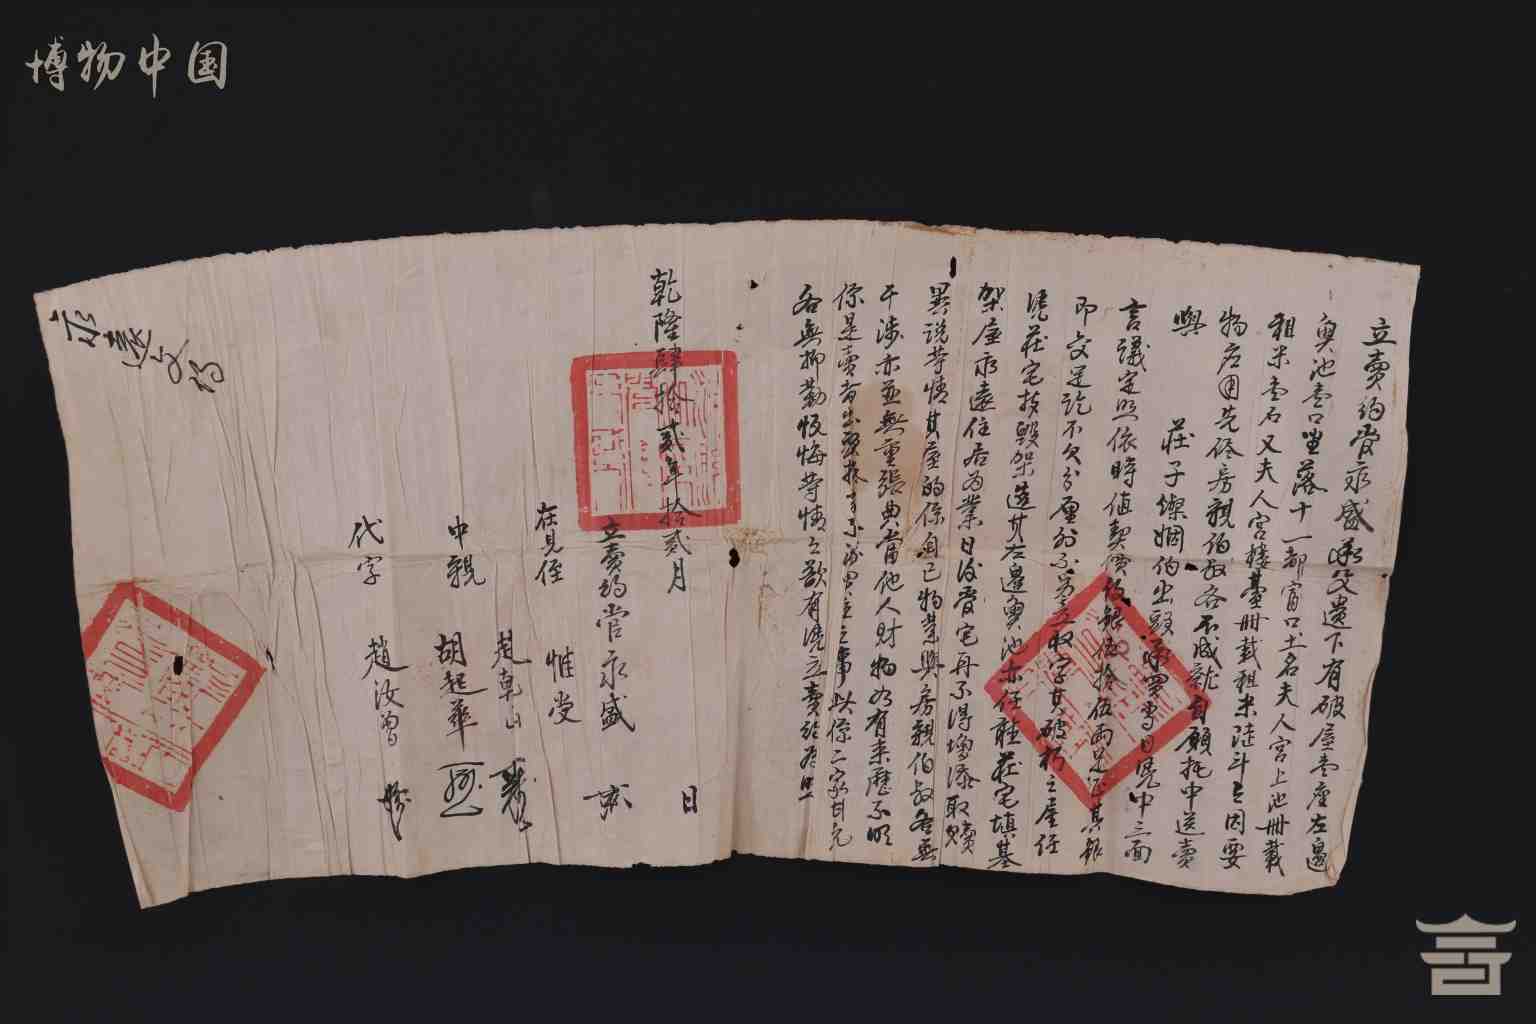 博物中国
立賣約常永盛承父遺下有破屋壹座左邊
魚池壹口坐落十一都富口土名夫人宮上池冊載
租米壹石又夫人宮樓臺冊載租米陸斗正因要
物应用先俻房親伯叔各不成就自願托中送賣
與 莊子燦姻伯出頭承買当日凭中三面
言議定照依時值契價紋銀伍拾伍両足正其銀
即交足訖不欠分厘外不另立収字其破朽之屋任
凭莊宅拆毀架造其左邊魚池亦任聽莊宅填基
架屋永遠住居为業日後常宅再不得增添取贖
異説等情其屋的係自己物業與房親伯叔各無
干涉亦並無重張典當他人財物如有来歷不明
係是賣者出頭抵当不涉買主之事此係二家甘允
各無抑勒反悔等情立欲有凭立賣約为照
乾隆肆拾貳年拾貳月 日
立賣約常永盛
在見侄 惟受
趙乾山
中親 胡起華
代字 趙汝